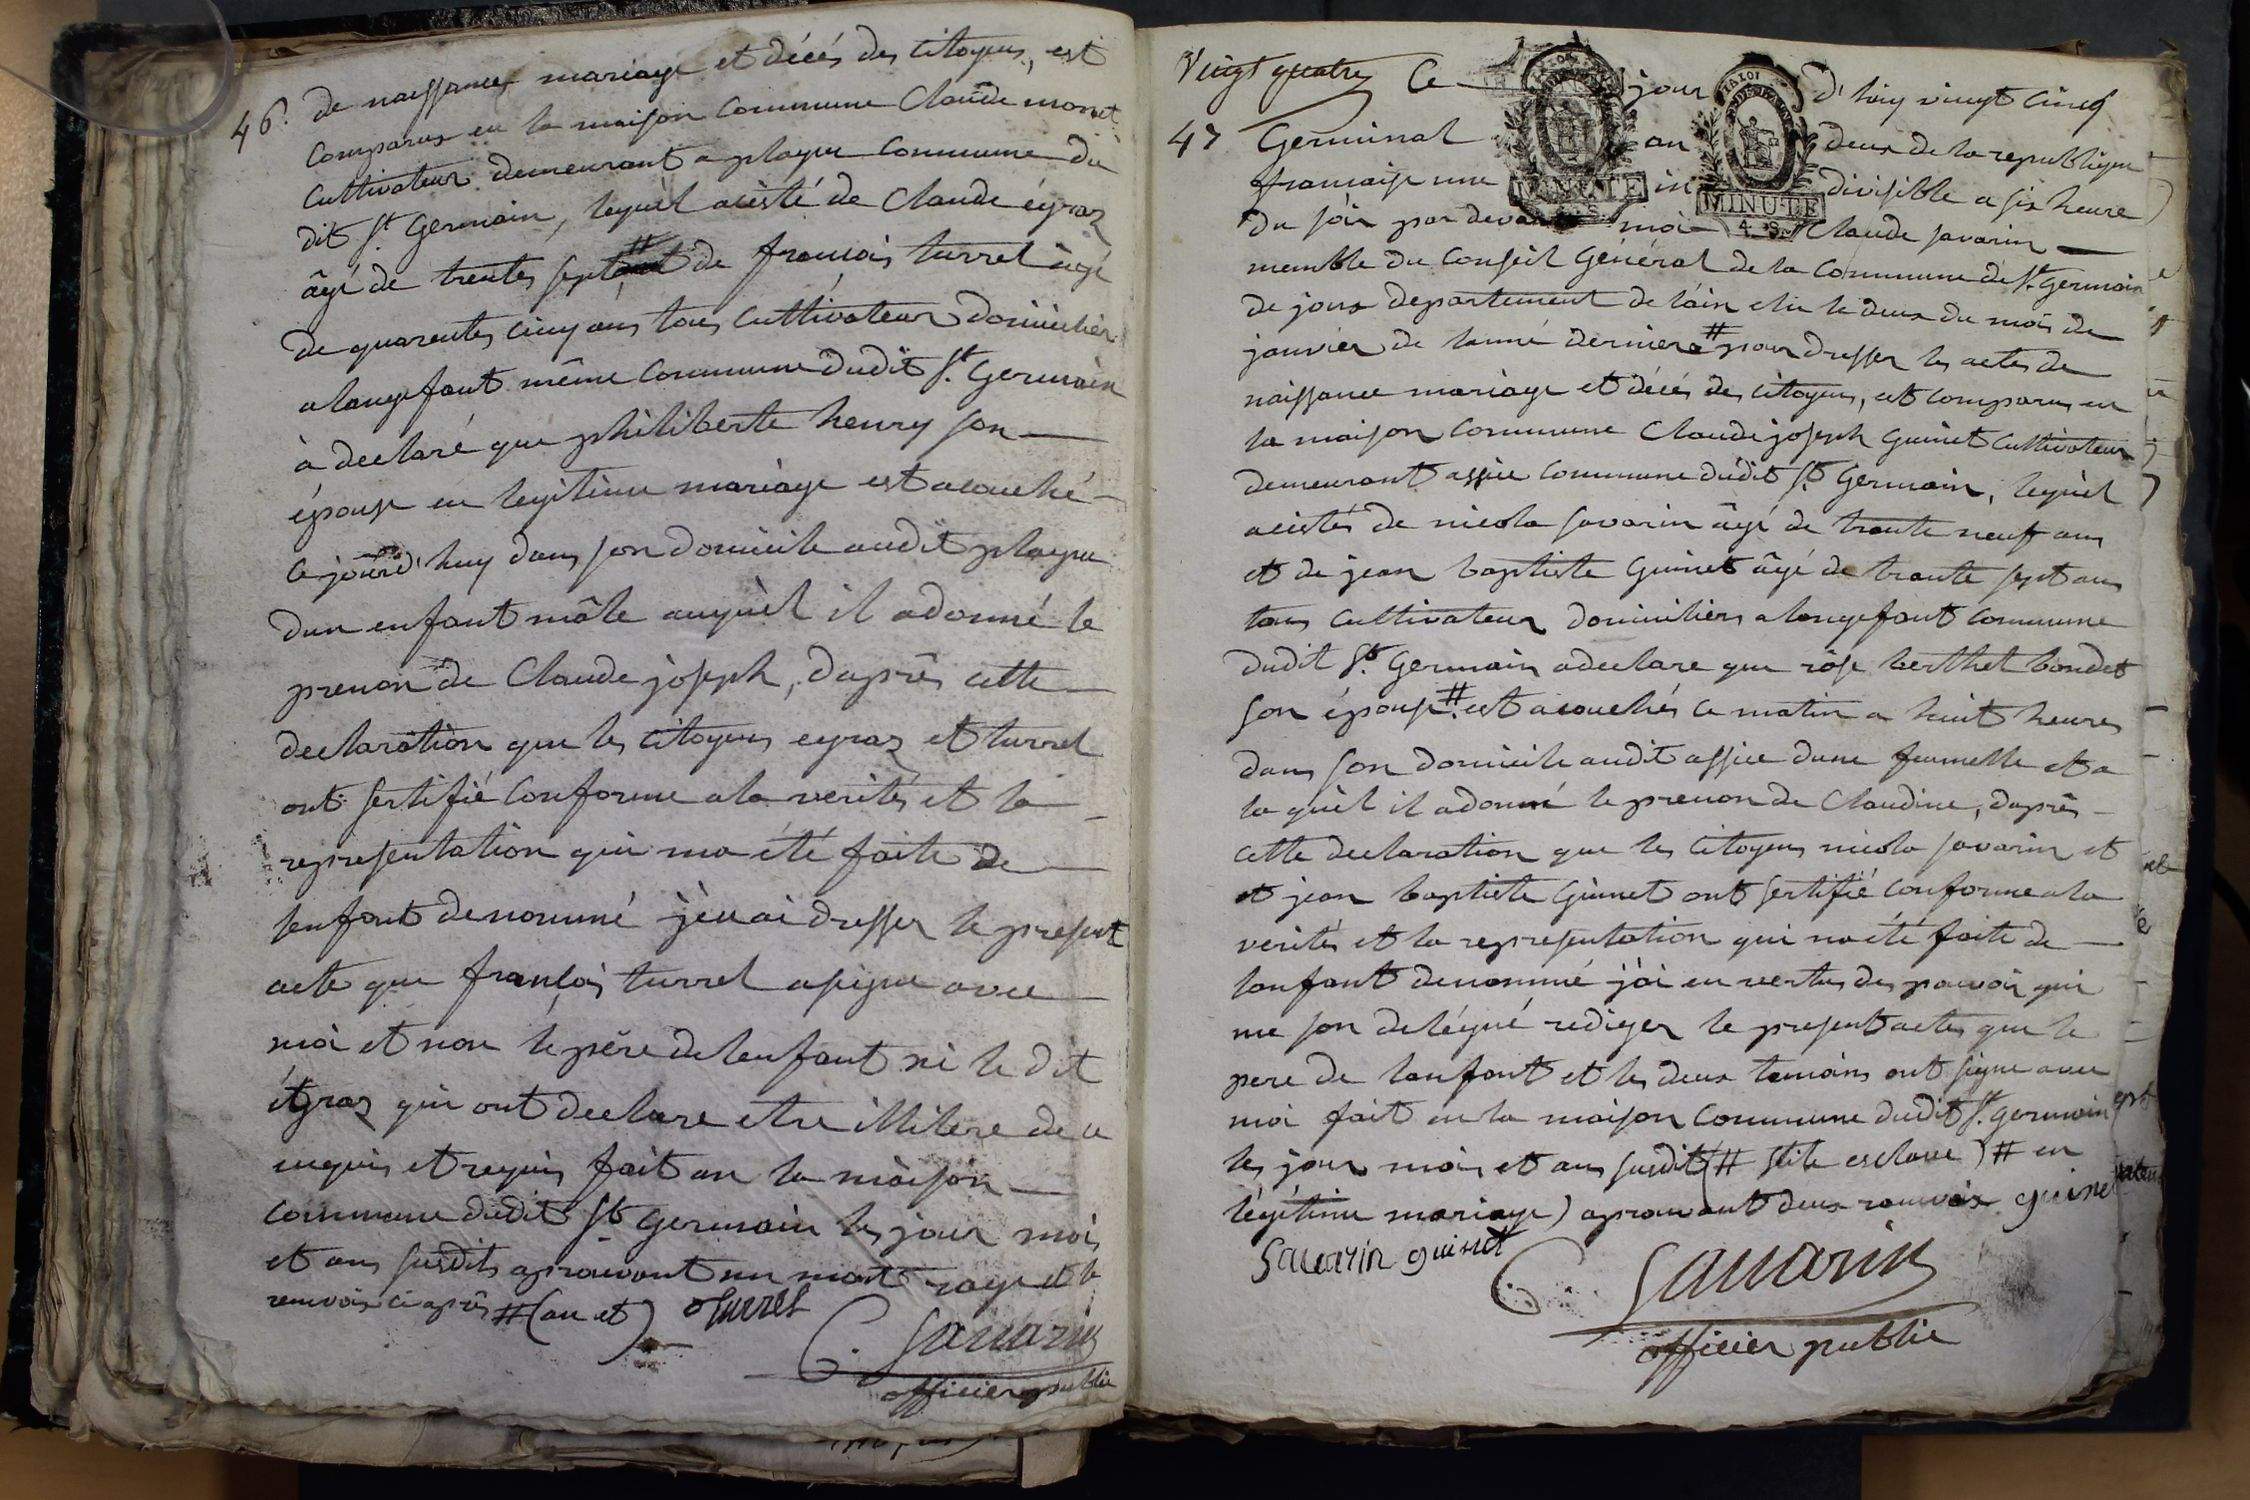 46.
de naissance mariage et décés des Citoyens, est
Comparus en la maison Commune Claude monet
Cultivateur demeurant a plagne Commune du
dit St. Germain, lequel acisté de Claude égraz
âgé de trentes sept ans # de francois turrel âgé
de quarentes cinq ans tous Cultivateur domiciliers
a longefant même Commune dudit St. Germain
à declaré que philiberte henry son
épouse en legitime mariage est acouché
ce jourd'huy dans son domicile audit plagne
dun enfant mâle auquel il adonné le
prenon de Claude joseph, daprês cette
declaration que les Citoyens egraz et turrel
ont sertifié Conforme ala verités et la
representation qui ma été faite de
lenfant denommé jèn ai dresser le present
acte que françois turrel asigne avec
moi et non le père de lenfant ni le dit
égraz qui ont declare etre illitere de ce
enquis et requis fait an la màison
Commune dudit St Germain les jour mois
et ans susdits aprouvant un mots raye et le
renvois ci aprês # (an et) fturrel
C. Savarin
officier public
Vingt quatre
47
Ce jour d'huy vingt cinq
Germinal an deux de la republique
francaise une indivisible a six heure
du soir par devant moi Claude savarin
memble du Conseil Général de la Commune de St. Germain
de joux departement de l'ain elu le deux du mois de
janvier de lanné derniere # pour dresser les actes de
naissance mariage et décés des citoyens, est comparus en
la maison Commune Claude joseph Guinet Cultivateur
demeurant assice Commune dudit St Germain, lequel
acistés de nicola savarin âgé de trante neuf ans
et de jean baptiste Guinet âgé de trante sept ans
tous Cultivateur domiciliers a longefant Commune
dudit St Germain adeclare que rôse berthet bondet
son épouse # est acouchés ce matin a huit heures
dans son domicile audit assice dune femmelle et a
la quèl il adonné le prenon de Claudine, daprês
cette declaration que les Citoyens nicola savarin et
et jean baptiste Guinet ont sertifié Conforme a la
verités et la representation qui ma été faite de
lanfant denommé j'ai en vertus des pouvoir qui
me son delégué rediger le present actes que le
pere de lanfant et les deux temoins ont signe avec
moi fait en la maison Commune dudit St. Germain
les jour mois et ans susdit (# stile esclave) # en
légitime mariage) aprouvant deux ranvois guinet
Savarin guinet
C. Savarin
officier public
MINUTE
MINUTE
4. S.